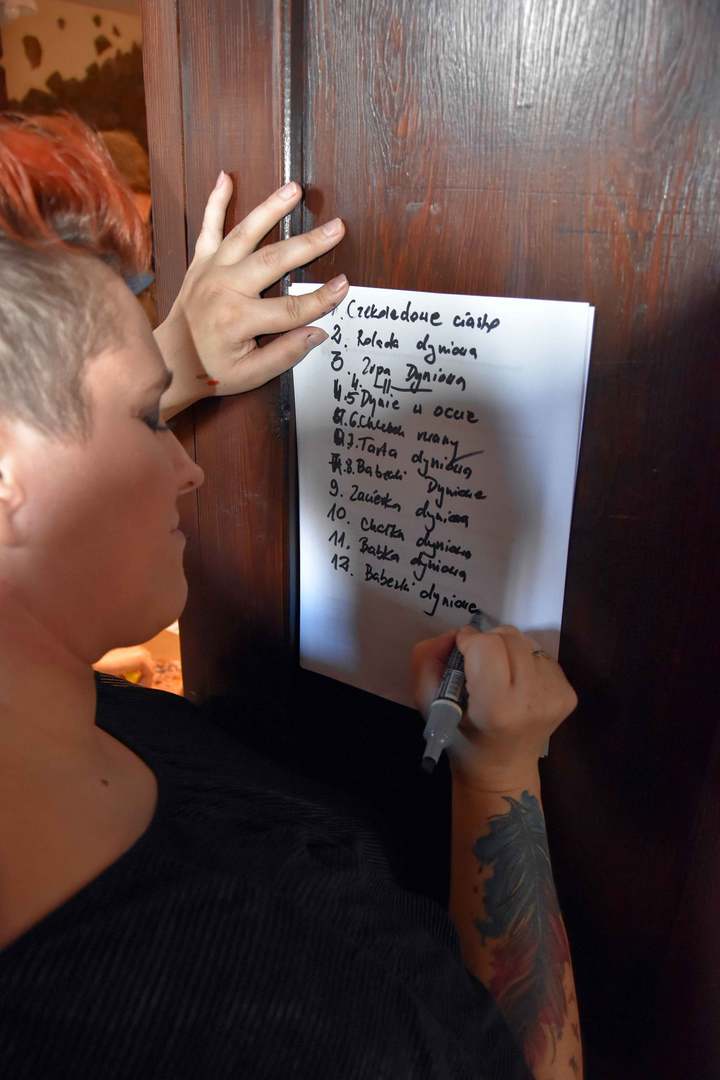 1. Czekoladowe ciasto
2. Rolada dyniowa
3. Zupa Dyniowa
4.
5 Dynie w occie
6. Chlebek
7. Tarta dyniowa
8. Babeczki Dyniowe
9. Zacierka dyniowa
10. Chałka dyniowa
11. Babka dyniowa
12. Babeczki dyniowe